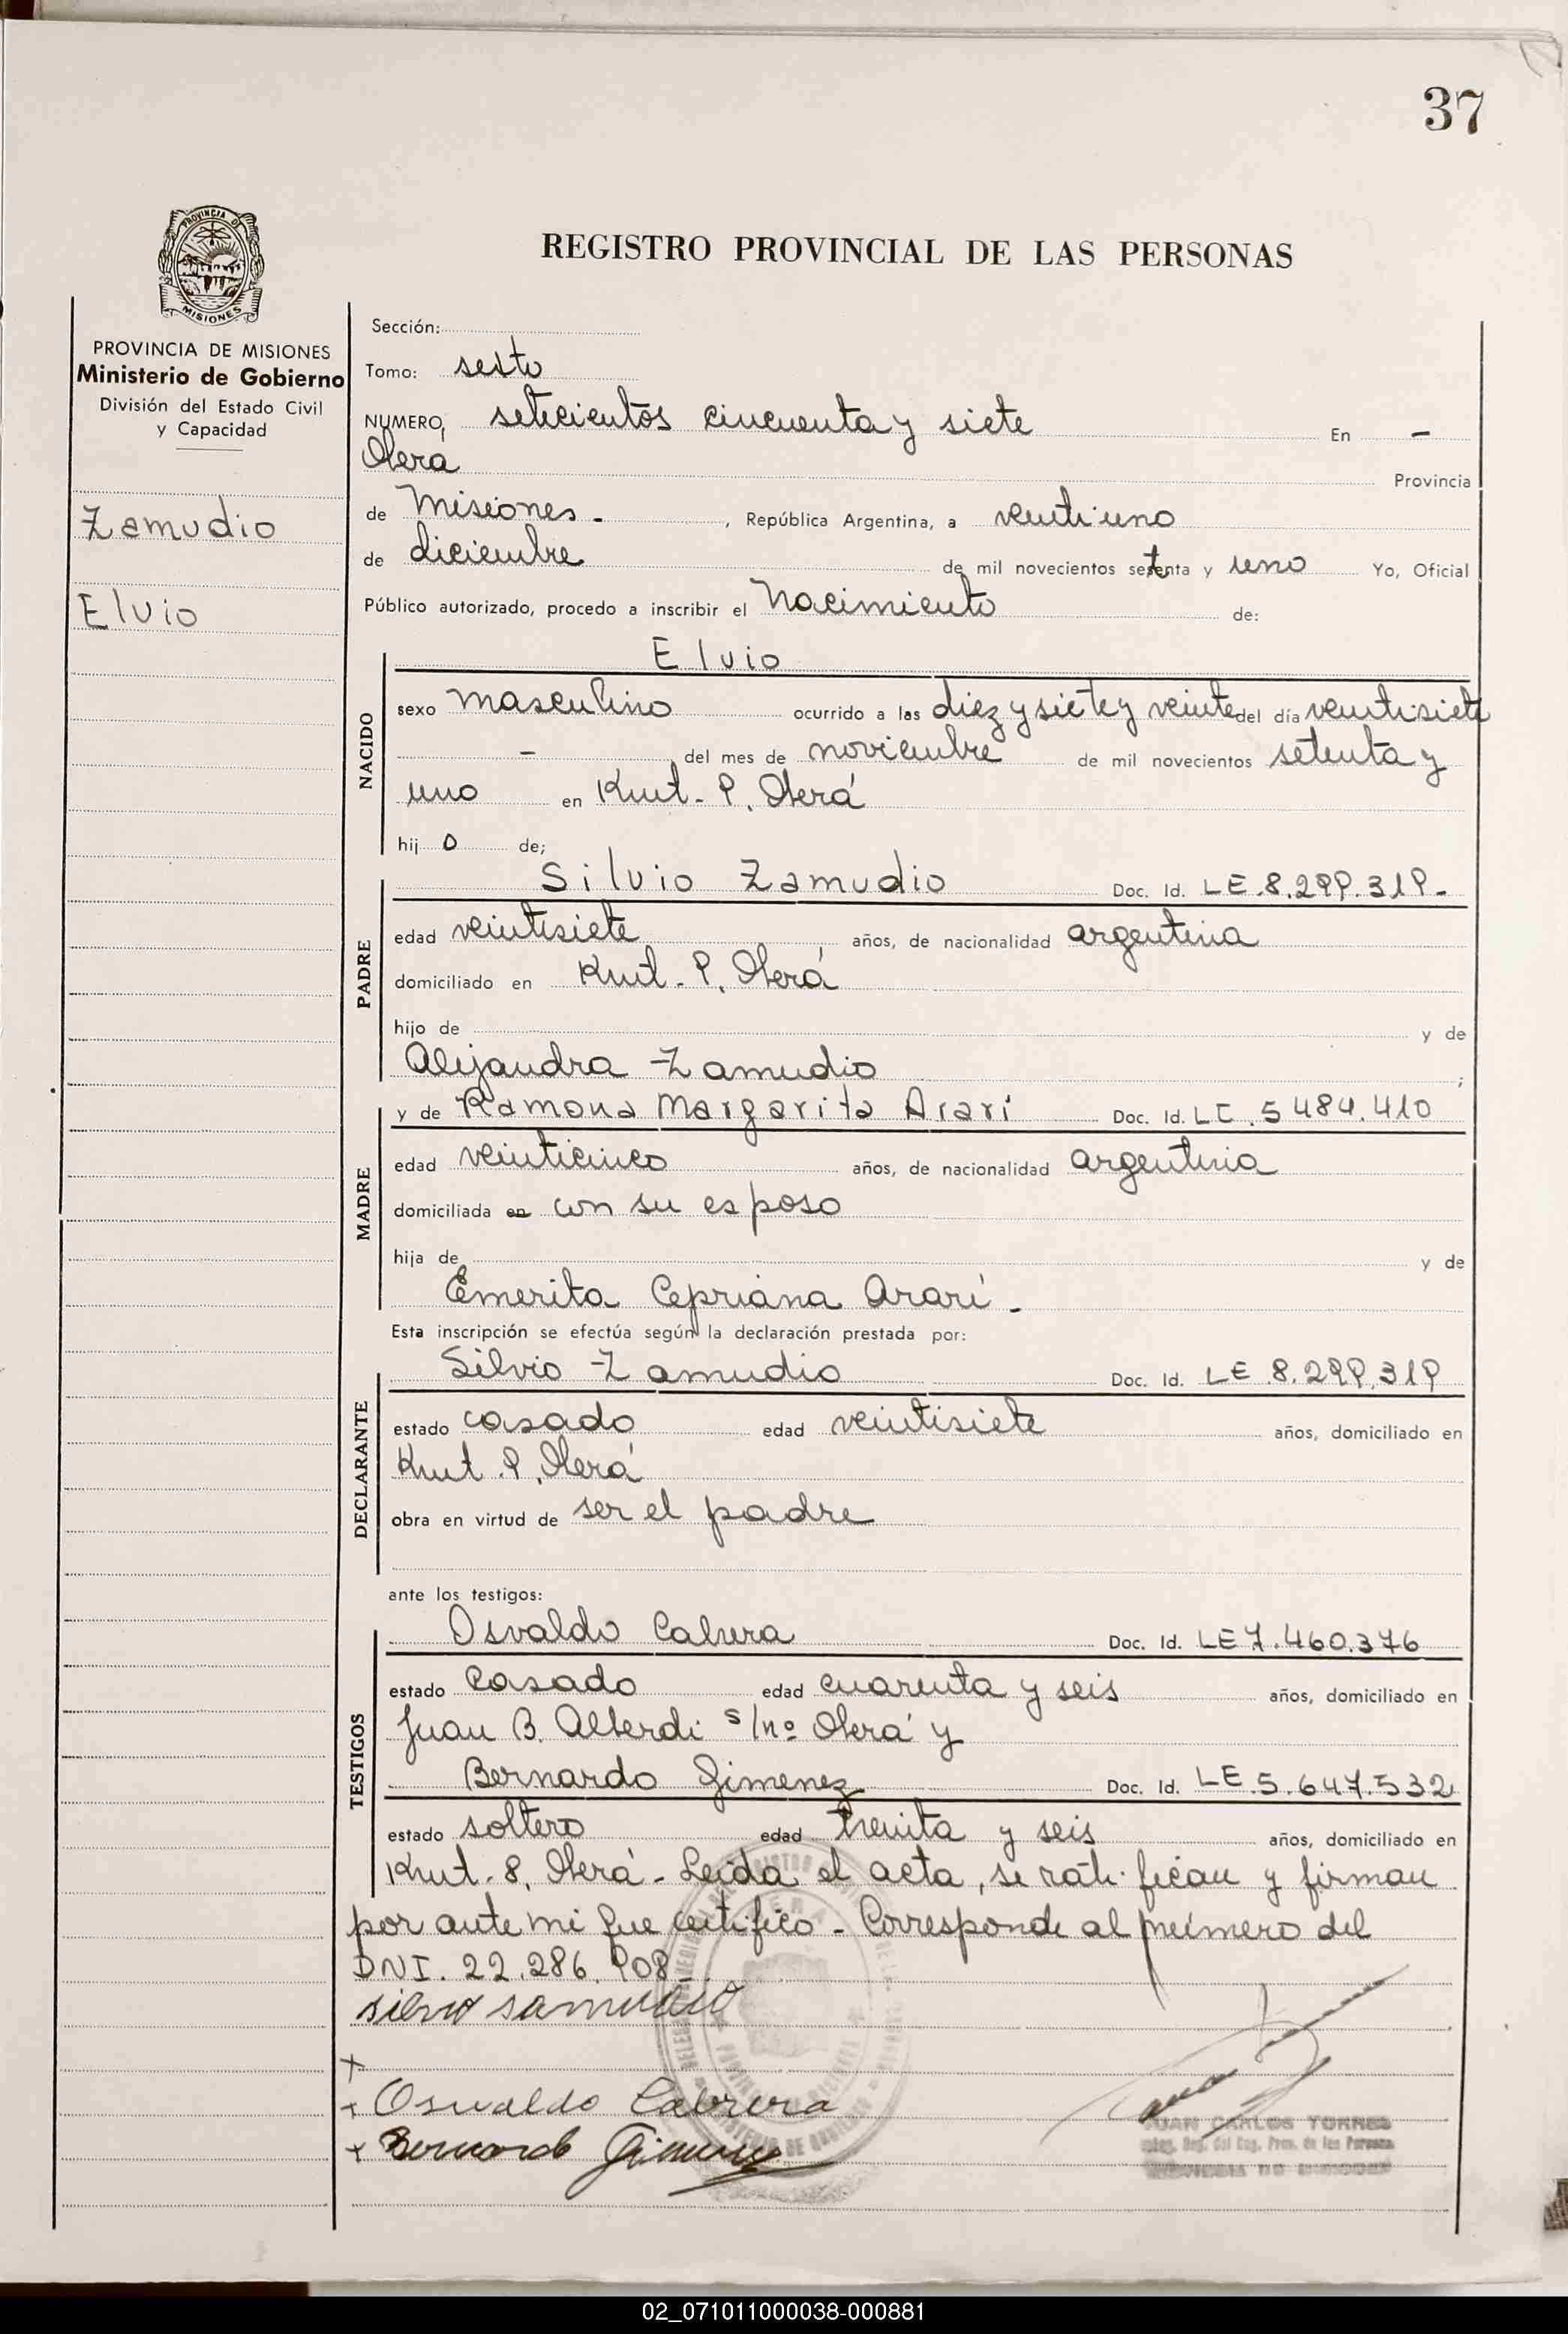 37
PROVINCIA DE
MISIONES
REGISTRO PROVINCIAL DE LAS PERSONAS
PROVINCIA DE MISIONES
Ministerio de Gobierno
División del Estado Civil
y Capacidad
Zamudio
Elvio
Sección:
Tomo: sexto
NUMERO, setecientos cincuenta y siete En -
Oberá Provincia
de Misiones - , República Argentina, a veintiuno
de diciembre de mil novecientos setenta y uno Yo, Oficial
Público autorizado, procedo a inscribir el Nacimiento de:
Elvio
NACIDO
sexo masculino ocurrido a las diez y siete y veinte del día veintisiete
- del mes de noviembre de mil novecientos setenta y
uno en Kmt. 9. Oberá
hij o de;
Silvio Zamudio Doc. Id. LE.8.299.319-
PADRE
edad veintisiete años, de nacionalidad argentina
domiciliado en Kmt. 9. Oberá
hijo de y de
Alejandra Zamudio ;
y de Ramona Margarita Ararí Doc. Id. LC. 5 484.410
MADRE
edad veinticinco años, de nacionalidad argentina
domiciliada en con su esposo
hija de y de
Emerita Cepriana Ararí -
Esta inscripción se efectúa según la declaración prestada por:
Silvio Zamudio Doc. Id. LE 8.299.319
DECLARANTE
estado casado edad veintisiete años, domiciliado en
Kmt. 9. Oberá
obra en virtud de ser el padre
ante los testigos:
Osvaldo Cabrera Doc. Id. LE 7.460.376
TESTIGOS
estado casado edad cuarenta y seis años, domiciliado en
Juan B. Alberdi s/nº Oberá y
Bernardo Gimenez Doc. Id. LE.5.647.532
estado soltero edad treinta y seis años, domiciliado en
Kmt. 8, Oberá - Leida el acta, se ratifican y firman
por ante mi que certifico - Corresponde al número del
DNI. 22.286.908-
silvio samudio
+
+ Osvaldo Cabrera
+ Bernardo Gimenez
JUAN CARLOS TORRES
02_071011000038-000881